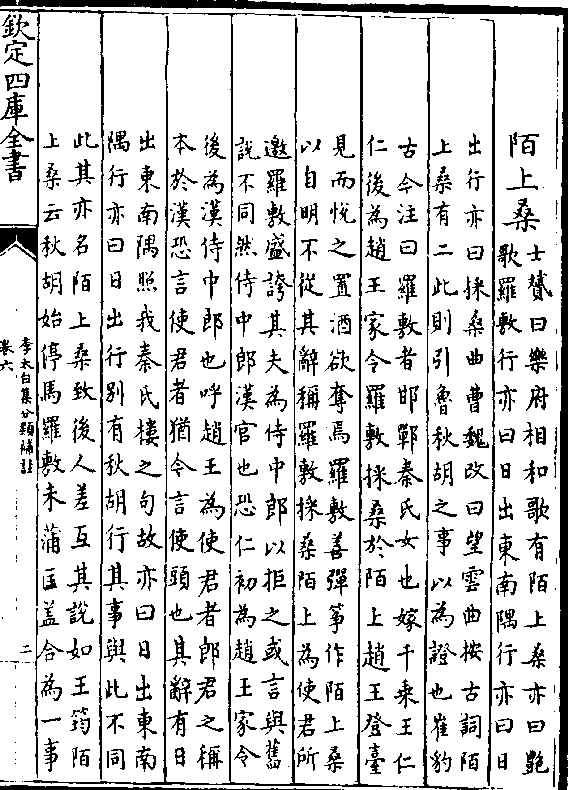 陌上桑士贇曰樂府相和歌有陌上桑亦曰艷
歌羅敷行亦曰日出東南隅行亦曰日
出行亦曰採桑曲曹魏改曰望雲曲按古詞陌
上桑有二此則引魯秋胡之事以為證也崔豹
古今注曰羅敷者邯鄲秦氏女也嫁千乘王仁
仁後為趙王家令羅敷採桑於陌上趙王登臺
見而悅之置酒欲奪焉羅敷善彈箏作陌上桑
以自明不從其辭稱羅敷採桑陌上為使君所
邀羅敷盛誇其夫為侍中郎以拒之或言與舊
說不同然侍中郎漢官也恐仁初為趙王家令
後為漢侍中郎也呼趙王為使君者郎君之稱
本於漢恐言使君者猶令言使頭也其辭有日
出東南隅照我秦氏樓之句故亦曰日出東南
隅行亦曰日出行別有秋胡行其事與此不同
此其亦名陌上桑致後人差互其說如王筠陌
上桑云秋胡始停馬羅敷未蒲匡盖合為一事
欽定四庫全書
李太白集分類補註
卷六
二